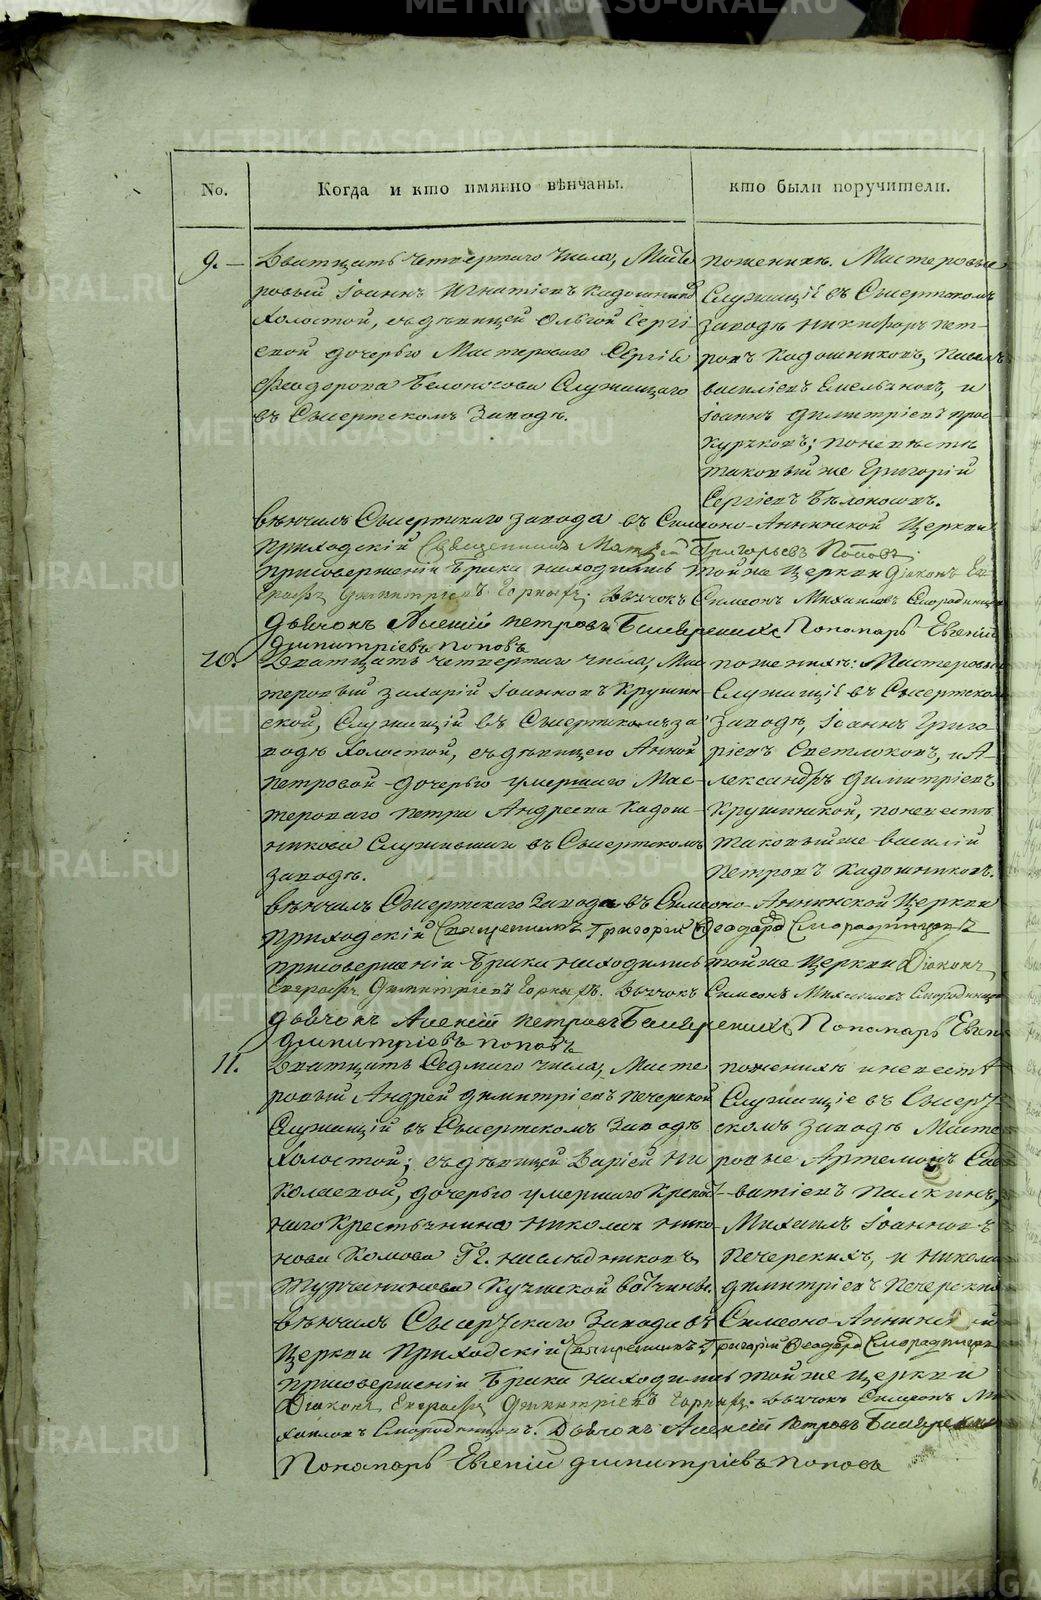 No.
Когда и кто имянно вѣнчаны.
кто были поручители.
9.
Дватцать четвертаго числа, Масте
ровый Іоаннъ Игнатіевъ Кадошниковъ
Холостой, съ дѣвицей Ольгой Сергі
евой дочерью Мастероваго Сергія
Феодорова Белоносова Служащаго
въ Сысертскомъ Заводѣ.
пожениху. Мастеровые
Служащіе въ Сысертскомъ
заводѣ Никифоръ Пет-
ровъ Кадошниковъ, Павелъ
Василіевъ Емельяновъ, и
Іоаннъ Димитріевъ Прос-
куряковъ; поневѣстѣ
таковый же Григорій
Сергіевъ Бѣлоносовъ.
вѣнчалъ Сысертскаго завода въ Симеоно-Аннинской Церкви
Приходскій Священникъ Матѳей Григорьевъ Поповъ.
присовершеніи Брака находились той же Церкви Діаконъ Ев
графъ Димитріевъ Горныхъ. Дьячокъ Симеонъ Михаиловъ Смородинцовъ
дьячокъ Алексій Петровъ Пономарь Евгеній
Димитріевъ Поповъ
10.
Дватцать четвертаго числа, Мас
теровый Захарій Іоанновъ Крушин
ской, Служащій въ Сысертскомъ за
водѣ Холостой, съ дѣвицею Анной
Петровой дочерью умершаго Мас-
тероваго Петра Андреева Кадош-
никова Служившаго въ Сысертскомъ
заводѣ.
поженихѣ: Мастеровые
Служащіе въ Сысертском
заводѣ, Іоаннъ Григо
ріевъ Светлоковъ, и А-
лександръ Димитріевъ
Крушинской, поневестѣ
таковый же Василій
Петровъ Кадошниковъ.
вѣнчалъ Сысертскаго Завода въ Симеоно-Аннинской Церкви
Приходскій Священникъ Григорій Ѳеодоровъ Смородинцовъ
присовершеніи Брака находились той же Церкви Діаконъ
Евграфъ Димитріевъ Горныхъ. Дьячокъ Симеонъ Михаиловъ Смородинцовъ
дьячокъ Алексій Петровъ Пономарь Евгеній
Димитріевъ Поповъ
11.
Дватцать Седмаго числа, Масте
ровый Андрей Димитріевъ Печерской
Служащій въ Сысертскомъ Заводѣ
Холостой; съ дѣвицей Даріей Ни
колаевой, дочерью умершаго Крепост-
наго Крестьянина Николая Нико
нова Комова Гг. наслѣдниковъ
Турчанинова Куяшской вотчины.
поженихѣ и невестѣ
Служащіе въ Сысерт-
скомъ заводѣ Масте
ровые Артемонъ Сав
ватіевъ Палкинъ,
Михаилъ Іоанновъ
Печерскихъ, и Никола
Димитріевъ Печерской
вѣнчалъ Сысертскаго Завода въ Симеоно-Аннинской
Церкви Приходскій Священникъ Григорій Ѳеодоровъ Смородинцовъ
присовершеніи Брака находились той же Церкви
Діаконъ Евграфъ Димитріевъ Горныхъ. дьячокъ Симеонъ Ми
хаиловъ Смородинцовъ. Дьячокъ Алексій Петровъ
Пономарь Евгеній Димитріевъ Поповъ
METRIKI.GASO-URAL.RU